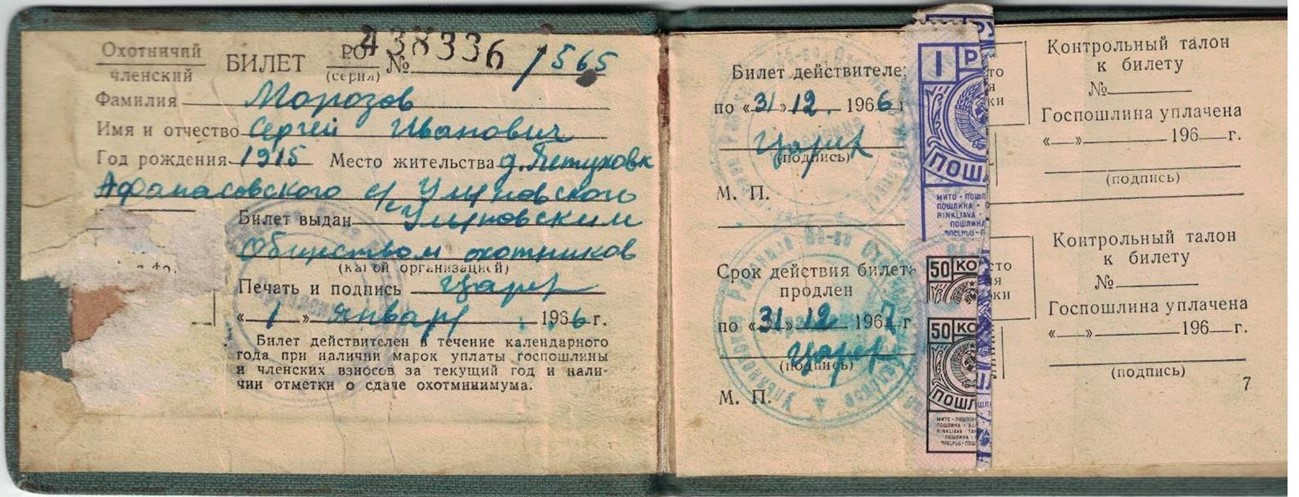 Охотничий
членский
БИЛЕТ РО № 438336 / 565
(серия)
Фамилия Морозов
Имя и отчество Сергей Иванович
Год рождения 1915 Место жительства д. Петуховк
Афанасовского с/
Билет выдан
Обществом охотников
(какой организацией)
Печать и подпись
«1» январ 1966 г.
Билет действителен в течение календарного
года при наличии марок уплаты госпошлины
и членских взносов за текущий год и нали-
чии отметки о сдаче охотминимума.
Билет действителе
по «31» 12. 1966 г
(подпись)
М. П.
Срок действия билета
продлен
по «31» 12 1967 г
(подпись)
М. П.
1 Р
ПОШЛ
МИТО • ПОШЛ
ПОШЛИНА
RINKLIAVA
ПОШЛИНА
50 КО
50 КО
ПОШЛ
МИТО • ПОШЛИН
Контрольный талон
к билету
№
Госпошлина уплачена
« » 196 г.
(подпись)
Контрольный талон
к билету
№
Госпошлина уплачена
« » 196 г.
(подпись)
7